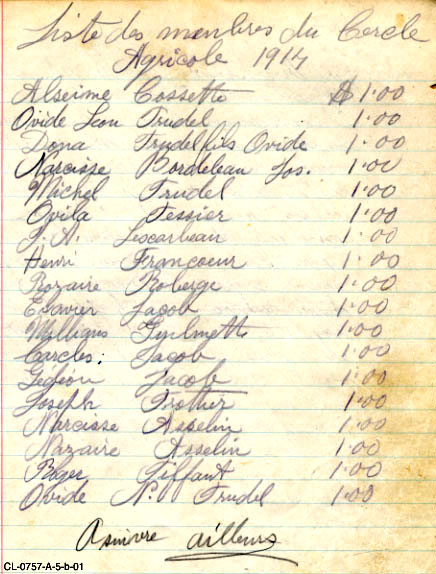 Liste des membres du Cercle
Agricole 1914
Alseime Cossette $1.00
Ovide Leon Trudel 1.00
Dona Trudel fils Ovide 1.00
Narcisse Bordeleau Jos. 1.00
Michel Trudel 1.00
Ovila Tessier 1.00
J. A. Lescarbeau 1.00
Henri Francoeur 1.00
Rozaire Roberge 1.00
Jacob 1.00
1.00
Jacob 1.00
Gédéon Jacob 1.00
Joseph Trottier 1.00
Narcisse Asselin 1.00
Nazaire Asselin 1.00
Roger Tiffaut 1.00
Ovide N. Trudel 1.00
A suivre ailleurs
CL-0757-A-5-b-01